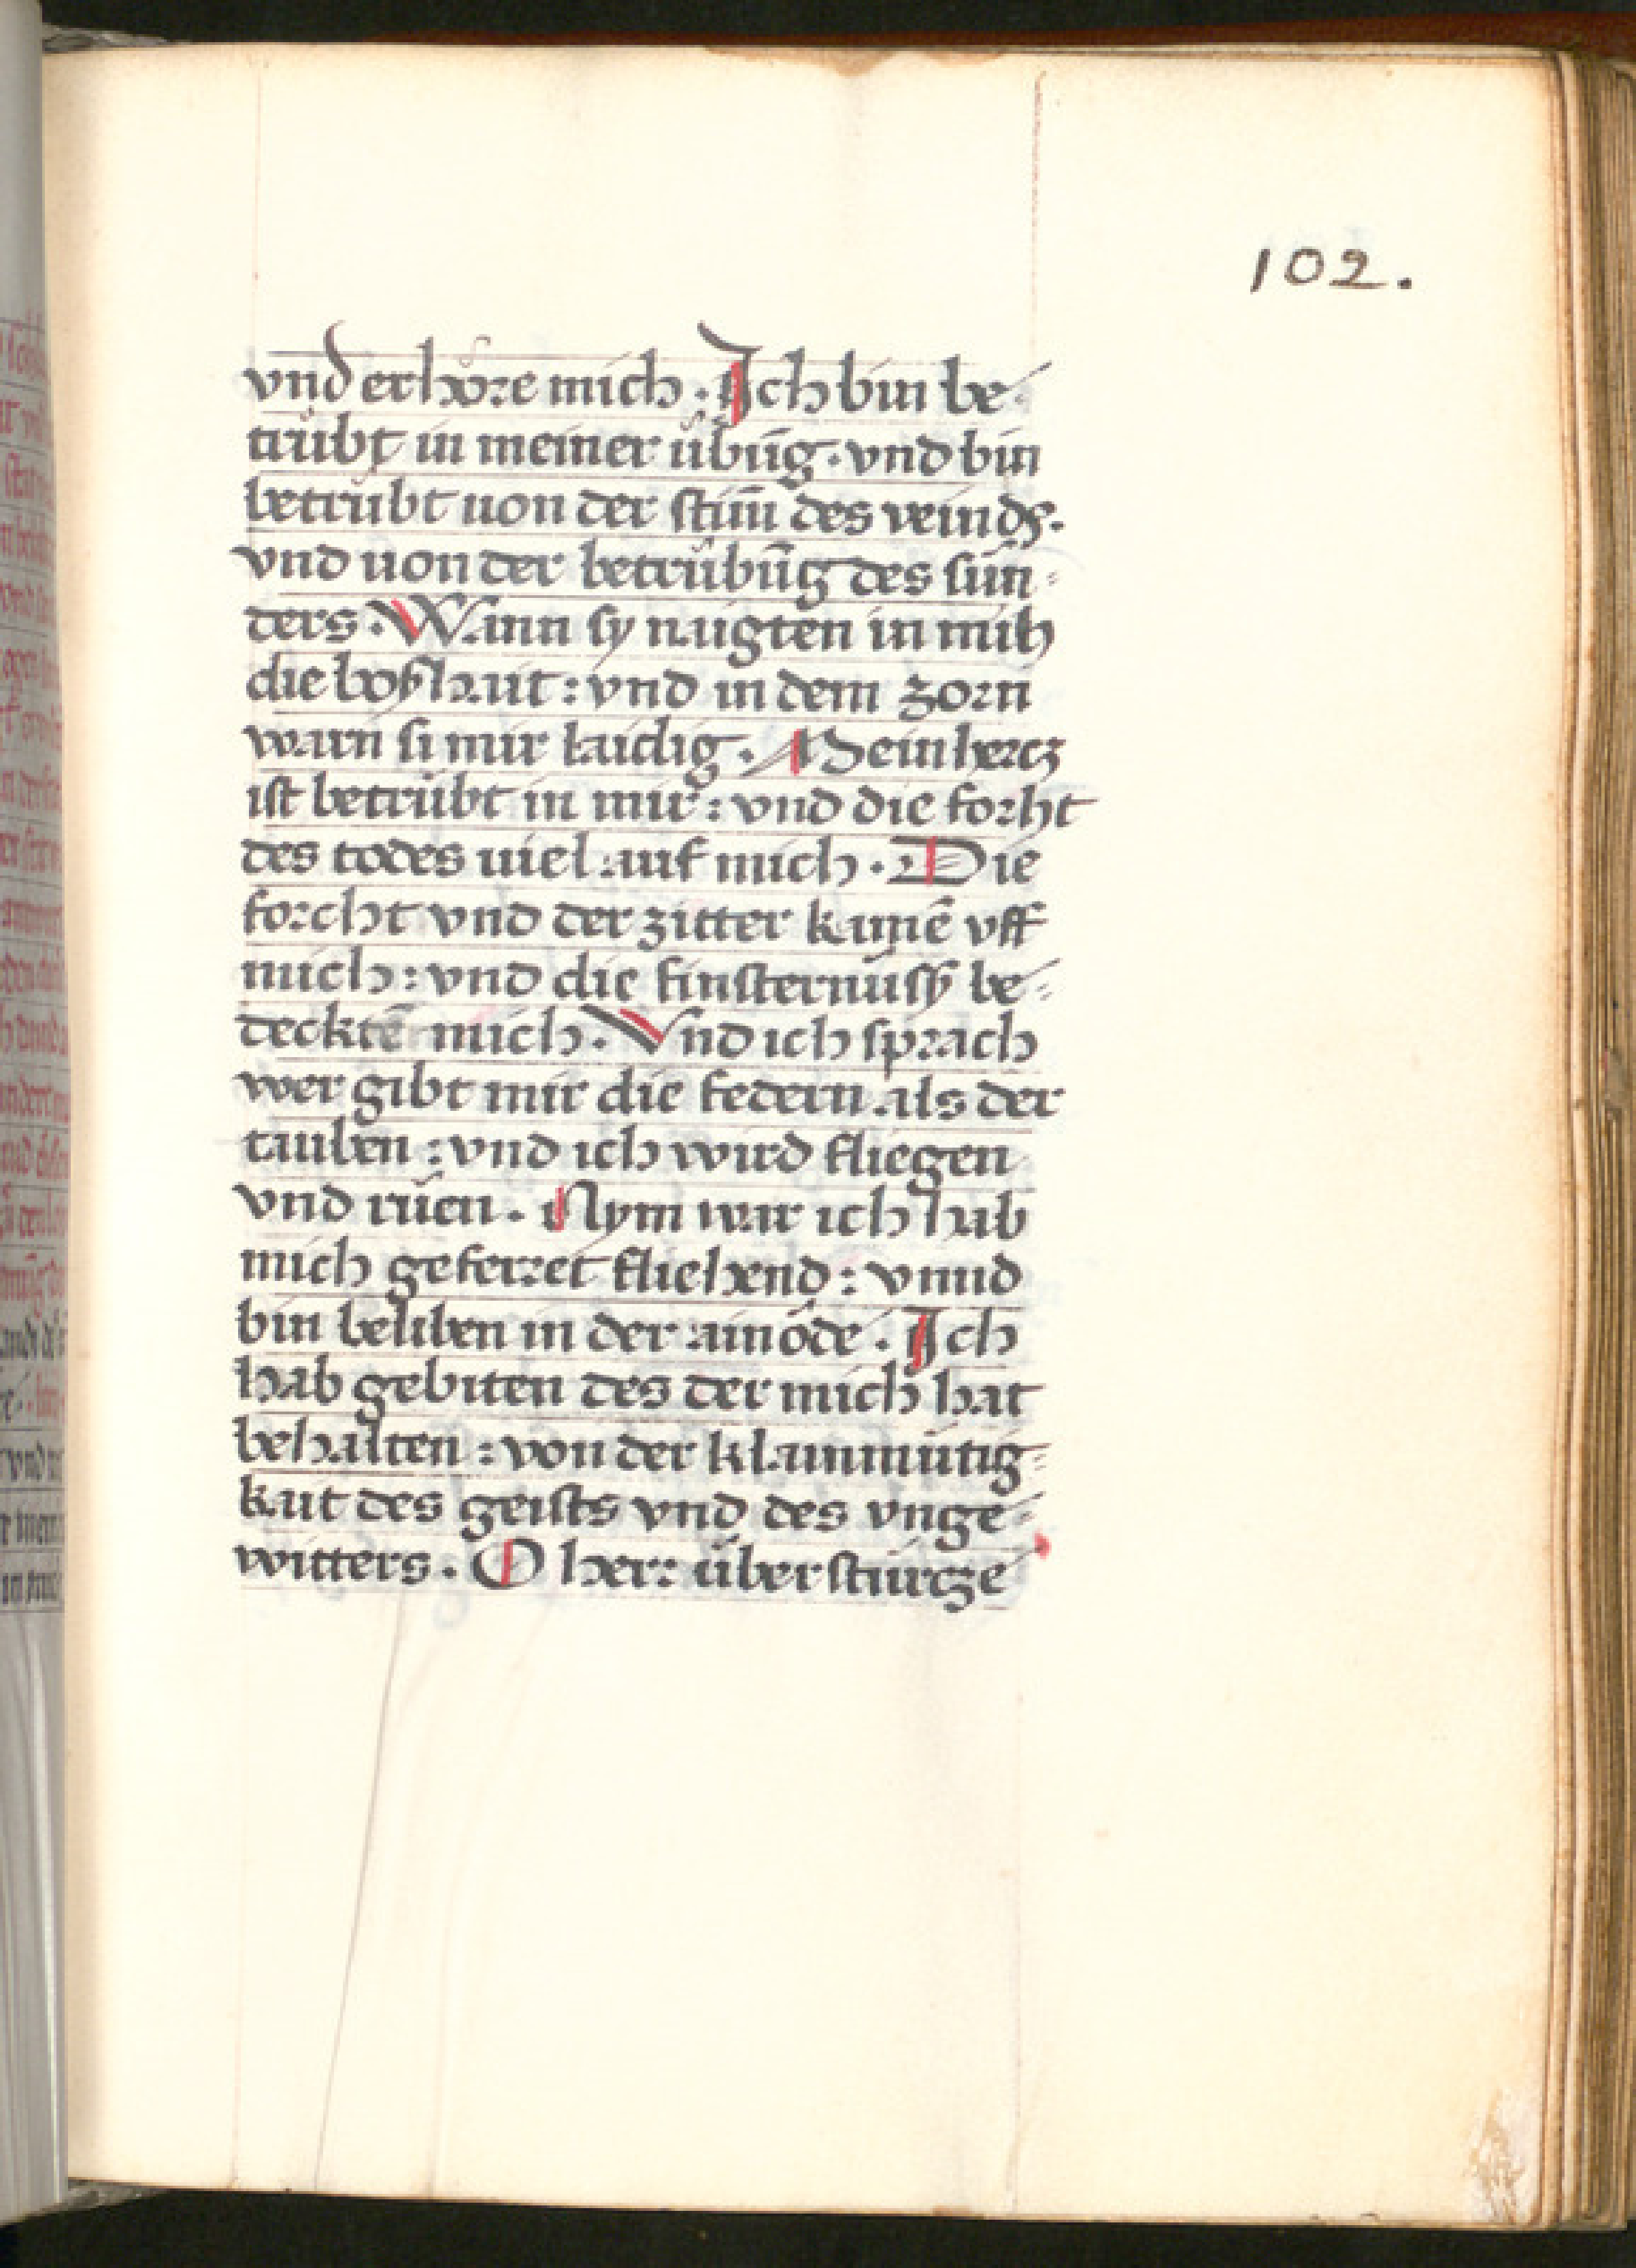 102.
vnd erhöre mich. Ich bin be-
trübt in meiner übūg. vnd bin
betrübt uon der stim̄ des veinds.
vnd uon der betrübūg des sün-
ders. Wann sy naigten in mih
die boßhait: vnd in dem zorn
warn si mir laidig. Mein hercz
ist betrübt in mir: vnd die forht
des todes uiel auf mich. Die
forcht vnd der zitter kamē vff
mich: vnd die finsternüsß be-
decktē mich. Vnd ich sprach
wer gibt mir die federn als der
tauben: vnd ich wird fliegen
vnd rüen. Nym war ich hab
mich geferret fliehend: vnnd
bin beliben in der ainöde. Ich
hab gebiten des der mich hat
behalten: von der klainmütig-
kait des geists vnd des vnge-
witters. O herr überstürcze